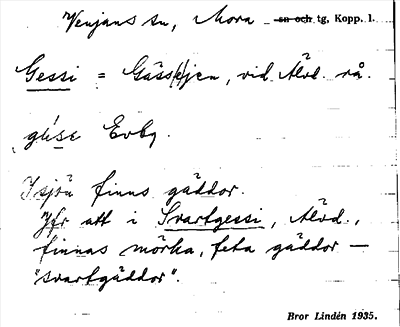 Venjans sn, Mora ~~sn och~~ tg, Kopp. l.
Gessi = Gäss(e)jen, vid Älvd. rå.
gè̀se Evbq.
I sjön finns gäddor.
Jfr att i Svartgessi, Älvd.,
finnas mörka, feta gäddor —
"svartgäddor".
Bror Lindén 1935.